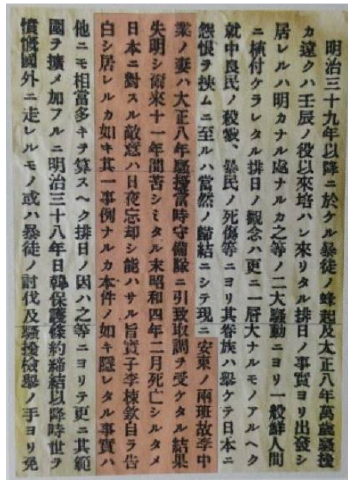 明治三十九年以降ニ於ケル暴徒ノ蜂起及大正八年萬歳騷擾
カ遠クハ壬辰ノ役以來培ハレ來リタル排日ノ事實ヨリ出發シ
居レルハ明カナル處ナルカ之等ノ二大騷動ニヨリ一般鮮人間
ニ植付ケラレタル排日ノ觀念ハ更ニ一層大ナルモノアルヘク
就中良民ノ殺戮、暴民ノ死傷等ニヨリ其眷族ハ擧ケテ日本ニ
怨恨ヲ挾ムニ至ルハ當然ノ歸結ニシテ現ニ安東ノ兩班故李中
業ノ妻ハ大正八年騷擾當時守備隊ニ引致取調ヲ受ケタル結果
失明シ爾來十一年間苦シミタル末昭和四年二月死亡シルタメ
日本ニ對スル敵意ハ日夜忘却シ能ハサル旨實子李棟欽自ラ告
白シ居レルカ如キ其一事例ナルカ本件ノ如キ隱レタル事實ハ
他ニモ相當多キヲ算スヘク排日ノ因ハ之等ニヨリテ更ニ其範
圍ヲ擴メ加フルニ明治三十八年日韓保護條約締結以降時世ヲ
憤慨國外ニ走レルモノ或ハ暴徒ノ討伐及騷擾檢擧ノ手ヨリ免